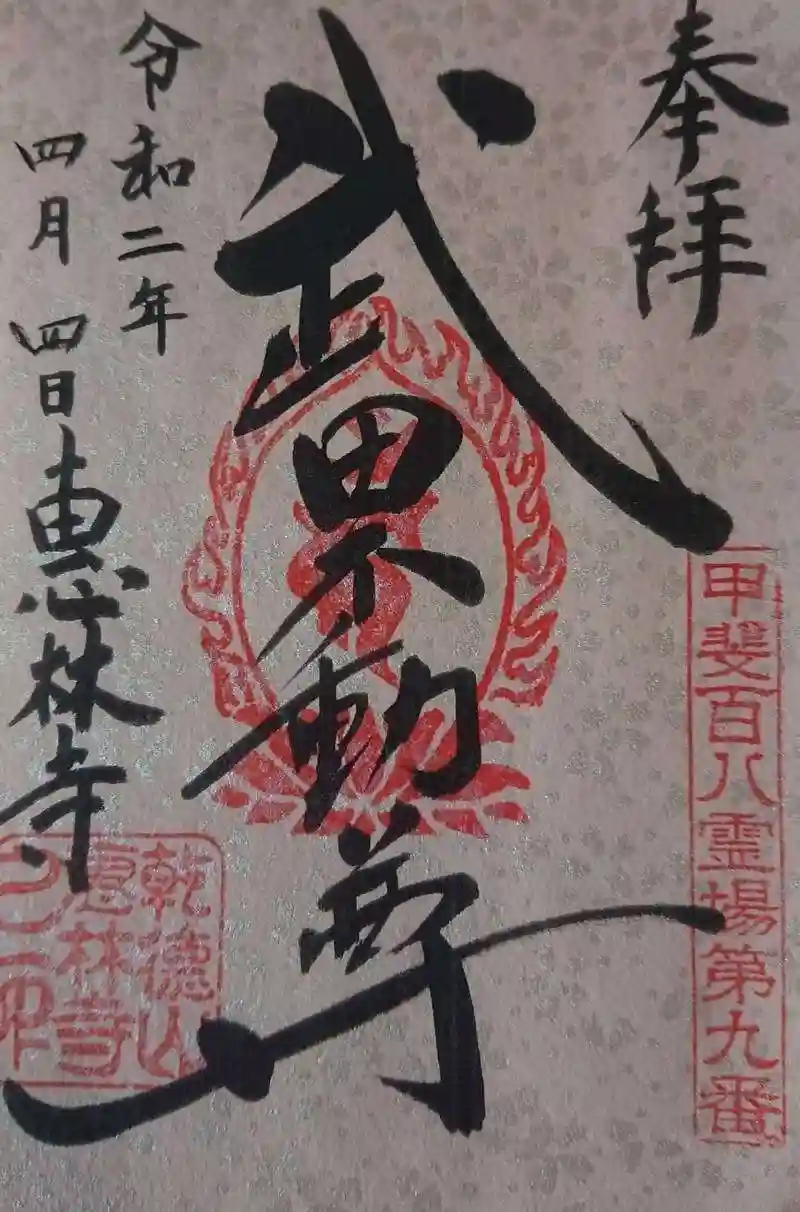 奉拝
甲斐百八霊場第九番
武田不動尊
令和二年
四月四日
惠林寺
乾徳山
恵林寺